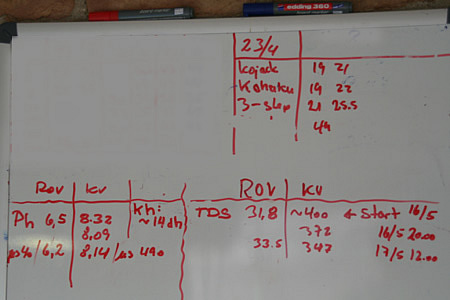 edding 360
23/4
Kojack 19 21
Kohaku 19 22
3-step 21 25.5
44
ROV KV
Ph 6,5 8.32 kh:
8,09 ~14dh
/6,2 8,14/µs 490
ROV KV
TDS 31,8 ~400 ← Start 16/5
372 16/5 20.00
33.5 347 17/5 12.00